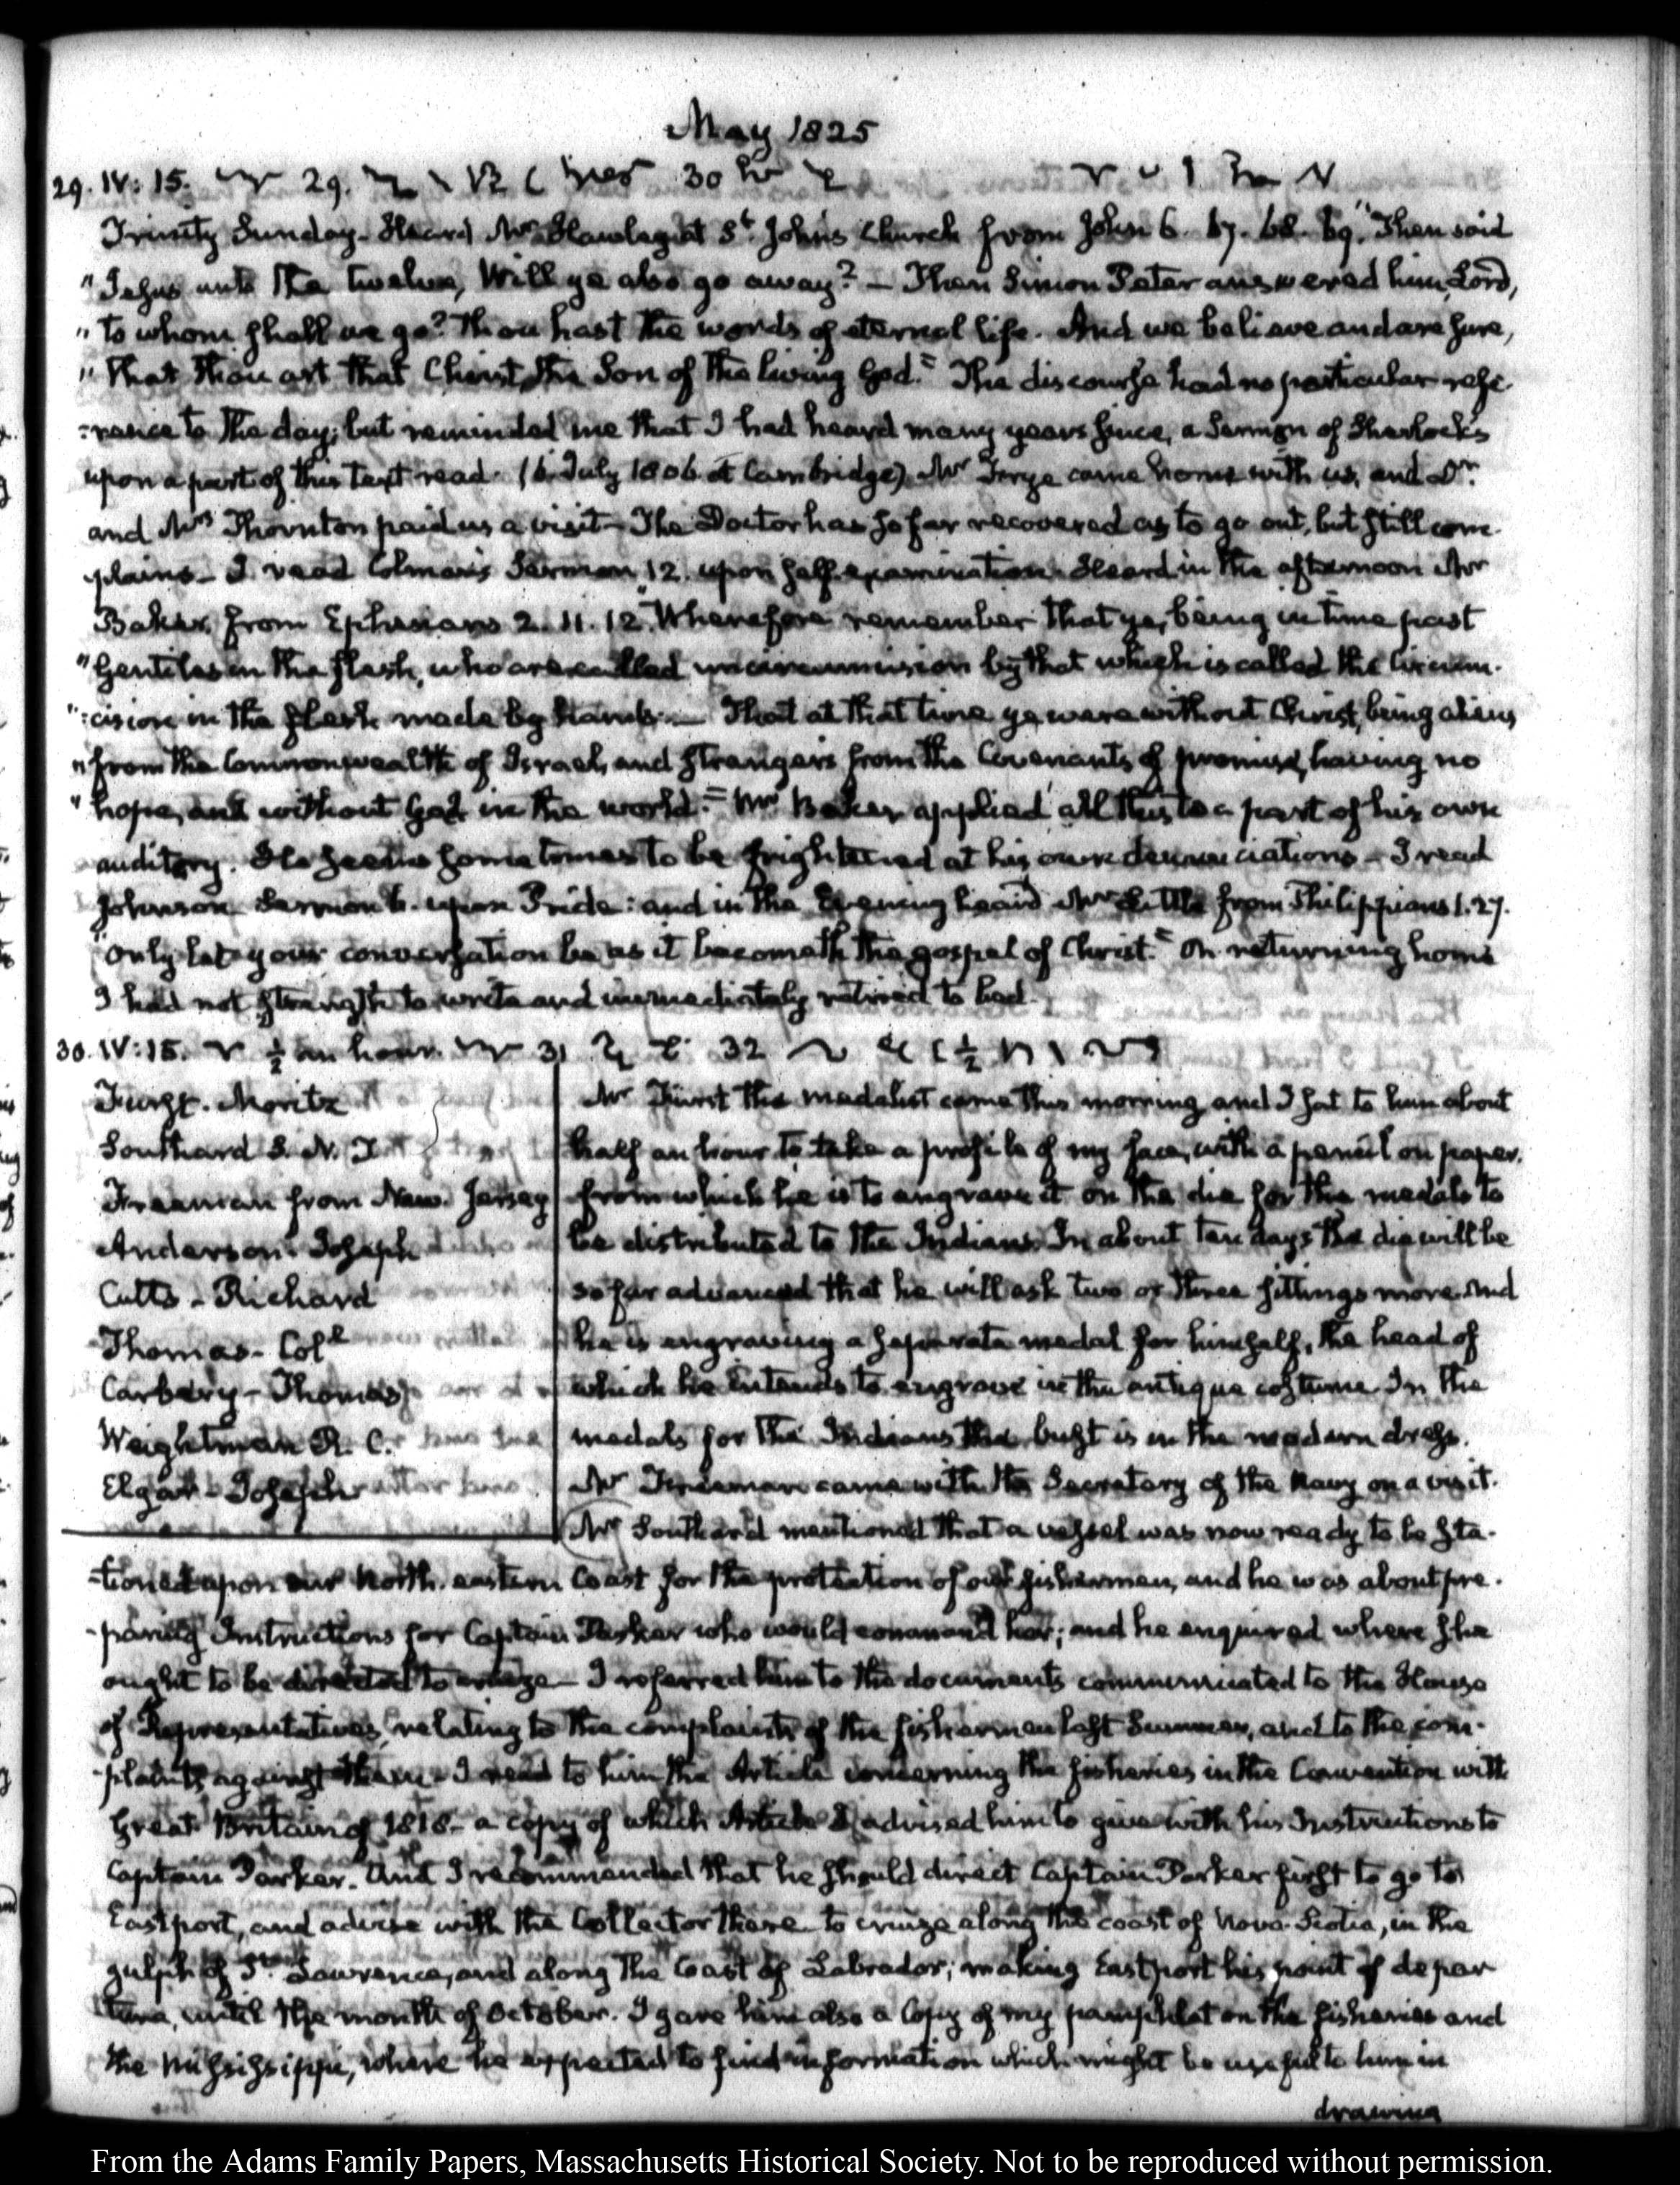 May 1825
29. IV: 15. 29. 30
Trinity Sunday. Heard Mr Hawley at St. John's Church from John 6. 67. 68. 69. "Then said
"Jesus unto the twelve, Will ye also go away? — Then Simon Peter answered him, Lord,
"to whom shall we go? Thou hast the words of eternal life. And we believe and are sure,
"that thou art that Christ, the Son of the living God." The discourse had no particular refe-
-rence to the day; but reminded me that I had heard many years since, a Sermon of Sherlock's
upon a part of this text read. (6. July 1806. at Cambridge) Mr Frye came home with us, and Dr.
and Mrs Thornton paid us a visit — The Doctor has so far recovered as to go out, but still com-
plains — I read Colman's Sermon 12. upon self-examination. Heard in the afternoon Mr
Baker, from Ephesians 2. 11. 12. "Wherefore remember that ye, being in time past
"Gentiles in the flesh, who are called uncircumcision by that which is called the Circum-
":cision in the flesh made by hands — That at that time ye were without Christ, being aliens
"from the Commonwealth of Israel, and strangers from the Covenants of promise, having no
"hope, and without God in the world." Mr Baker applied all this to a part of his own
auditory. He seems sometimes to be frightened at his own denunciations — I read
Johnson Sermon 6. upon Pride: and in the Evening heard Mr Little from Philippians 1. 27.
"Only let your conversation be as it becometh the gospel of Christ." On returning home
I had not strength to write and immediately retired to bed.
30. IV: 15. ½ an hour. 31 32 ½
Furst. Moritz
Southard S. N. J
Freeman from New-Jersey
Anderson. Joseph
Cutts - Richard
Thomas - Coll
Carbery - Thomas
Weightman R. C.
Elgar - Joseph
Mr Fürst the medalist came this morning and I sat to him about
half an hour to take a profile of my face, with a pencil on paper.
from which he is to engrave it on the die for the medals to
be distributed to the Indians. In about ten days the die will be
so far advanced that he will ask two or three sittings more. And
he is engraving a separate medal for himself, the head of
which he intends to engrave in the antique costume. In the
medals for the Indians the bust is in the modern dress.
Mr Freeman came with the Secretary of the Navy on a visit.
Mr Southard mentioned that a vessel was now ready to be sta-
-tioned upon our North-eastern Coast for the protection of our fishermen, and he was about pre-
-paring Instructions for Captain Parker who would command her; and he enquired where she
ought to be directed to cruize — I referred him to the documents communicated to the House
of Representatives, relating to the complaints of the fishermen last Summer, and to the com-
-plaints against them — I read to him the Article concerning the fisheries in the Convention with
Great Britain of 1818 — a copy of which Article I advised him to give with his Instructions to
Captain Parker. And I recommended that he should direct Captain Parker first to go to
Eastport, and advise with the Collector there to cruize along the coast of Nova-Scotia, in the
gulph of St. Lawrence, and along the Coast of Labrador; making Eastport his point of depar
ture, until the month of October. I gave him also a Copy of my pamphlet on the fisheries and
the Mississippi, where he expected to find information which might be useful to him in
drawing
From the Adams Family Papers, Massachusetts Historical Society. Not to be reproduced without permission.